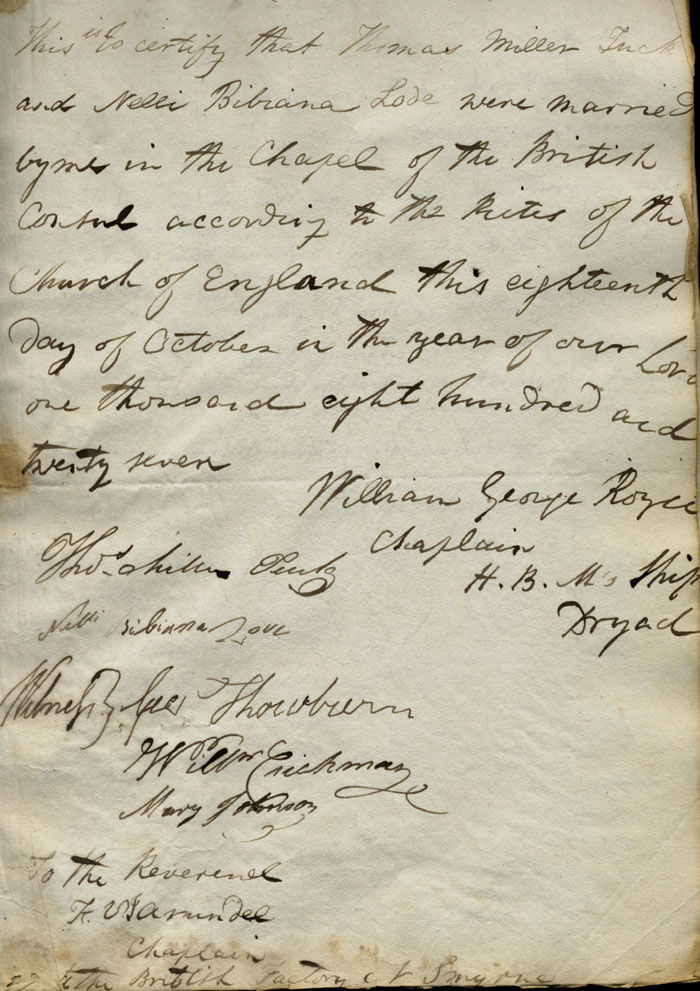 This is to certify that Thomas Miller Tuck
and Nelli Bibiana Lode were married
by me in the Chapel of the British
Consul according to the Rites of the
Church of England this eighteenth
Day of October in the year of our Lord
one thousand eight hundred and
twenty seven
William George Royce
Chaplain
H. B. M's Ship
Dryad
Thos. Miller
Nelli Bibiana
Witness Thowburn
Willm
Mary Johnson
To the Reverend
F. V. J. Arundel
Chaplain
to the British Factory at Smyrna